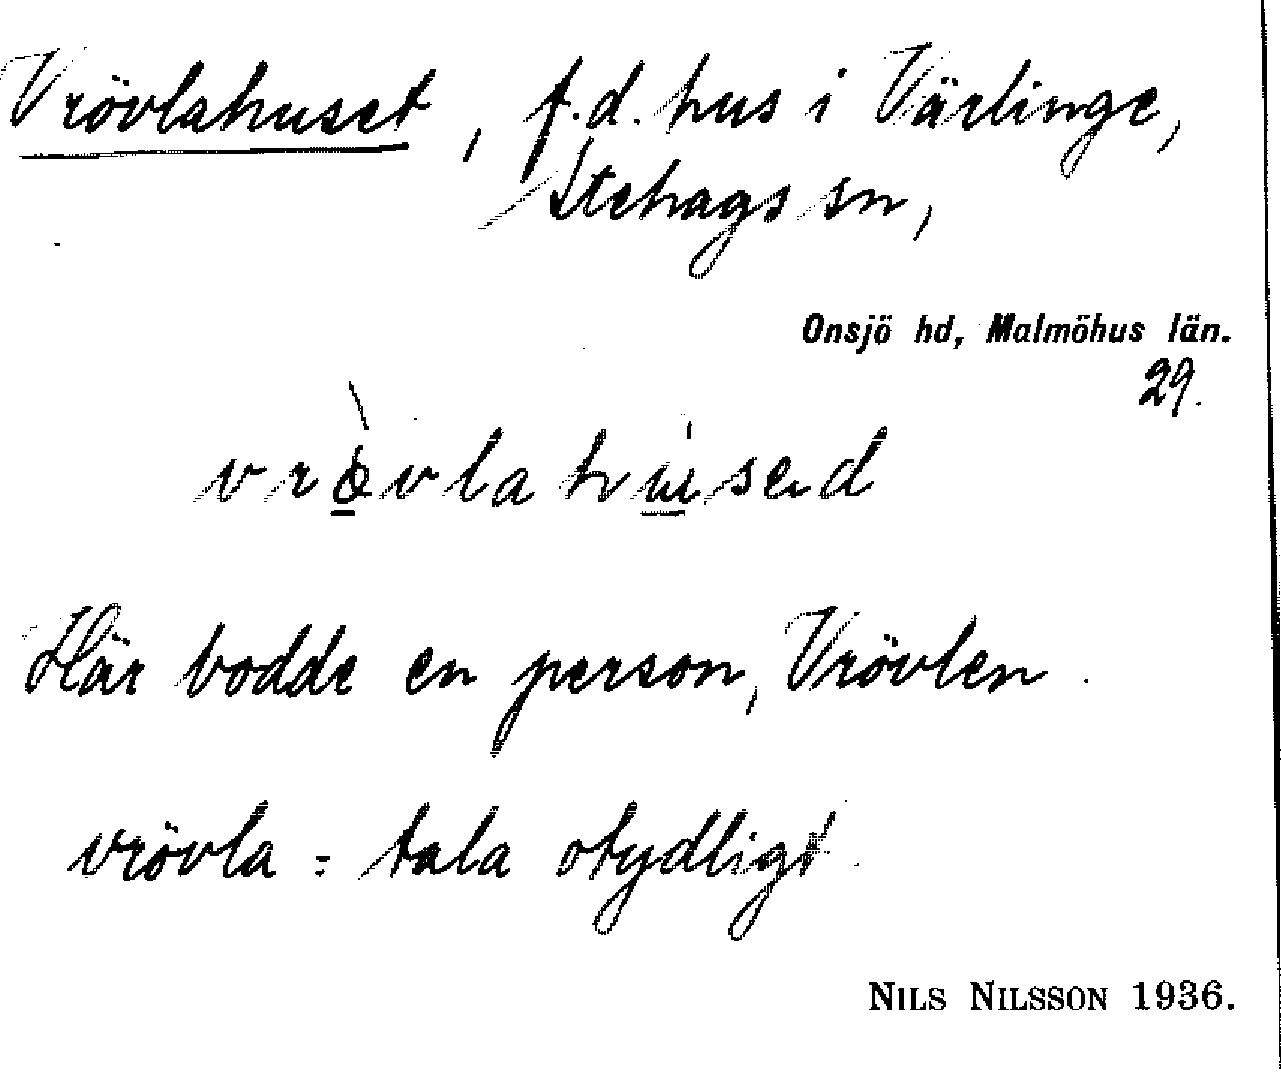 Vrövlahuset, f.d. hus i Värlinge,
Stehags sn,
Onsjö hd, Malmöhus län.
29.
vrövlahused
Här bodde en person, Vrövlen.
vrövla = tala otydligt.
NILS NILSSON 1936.